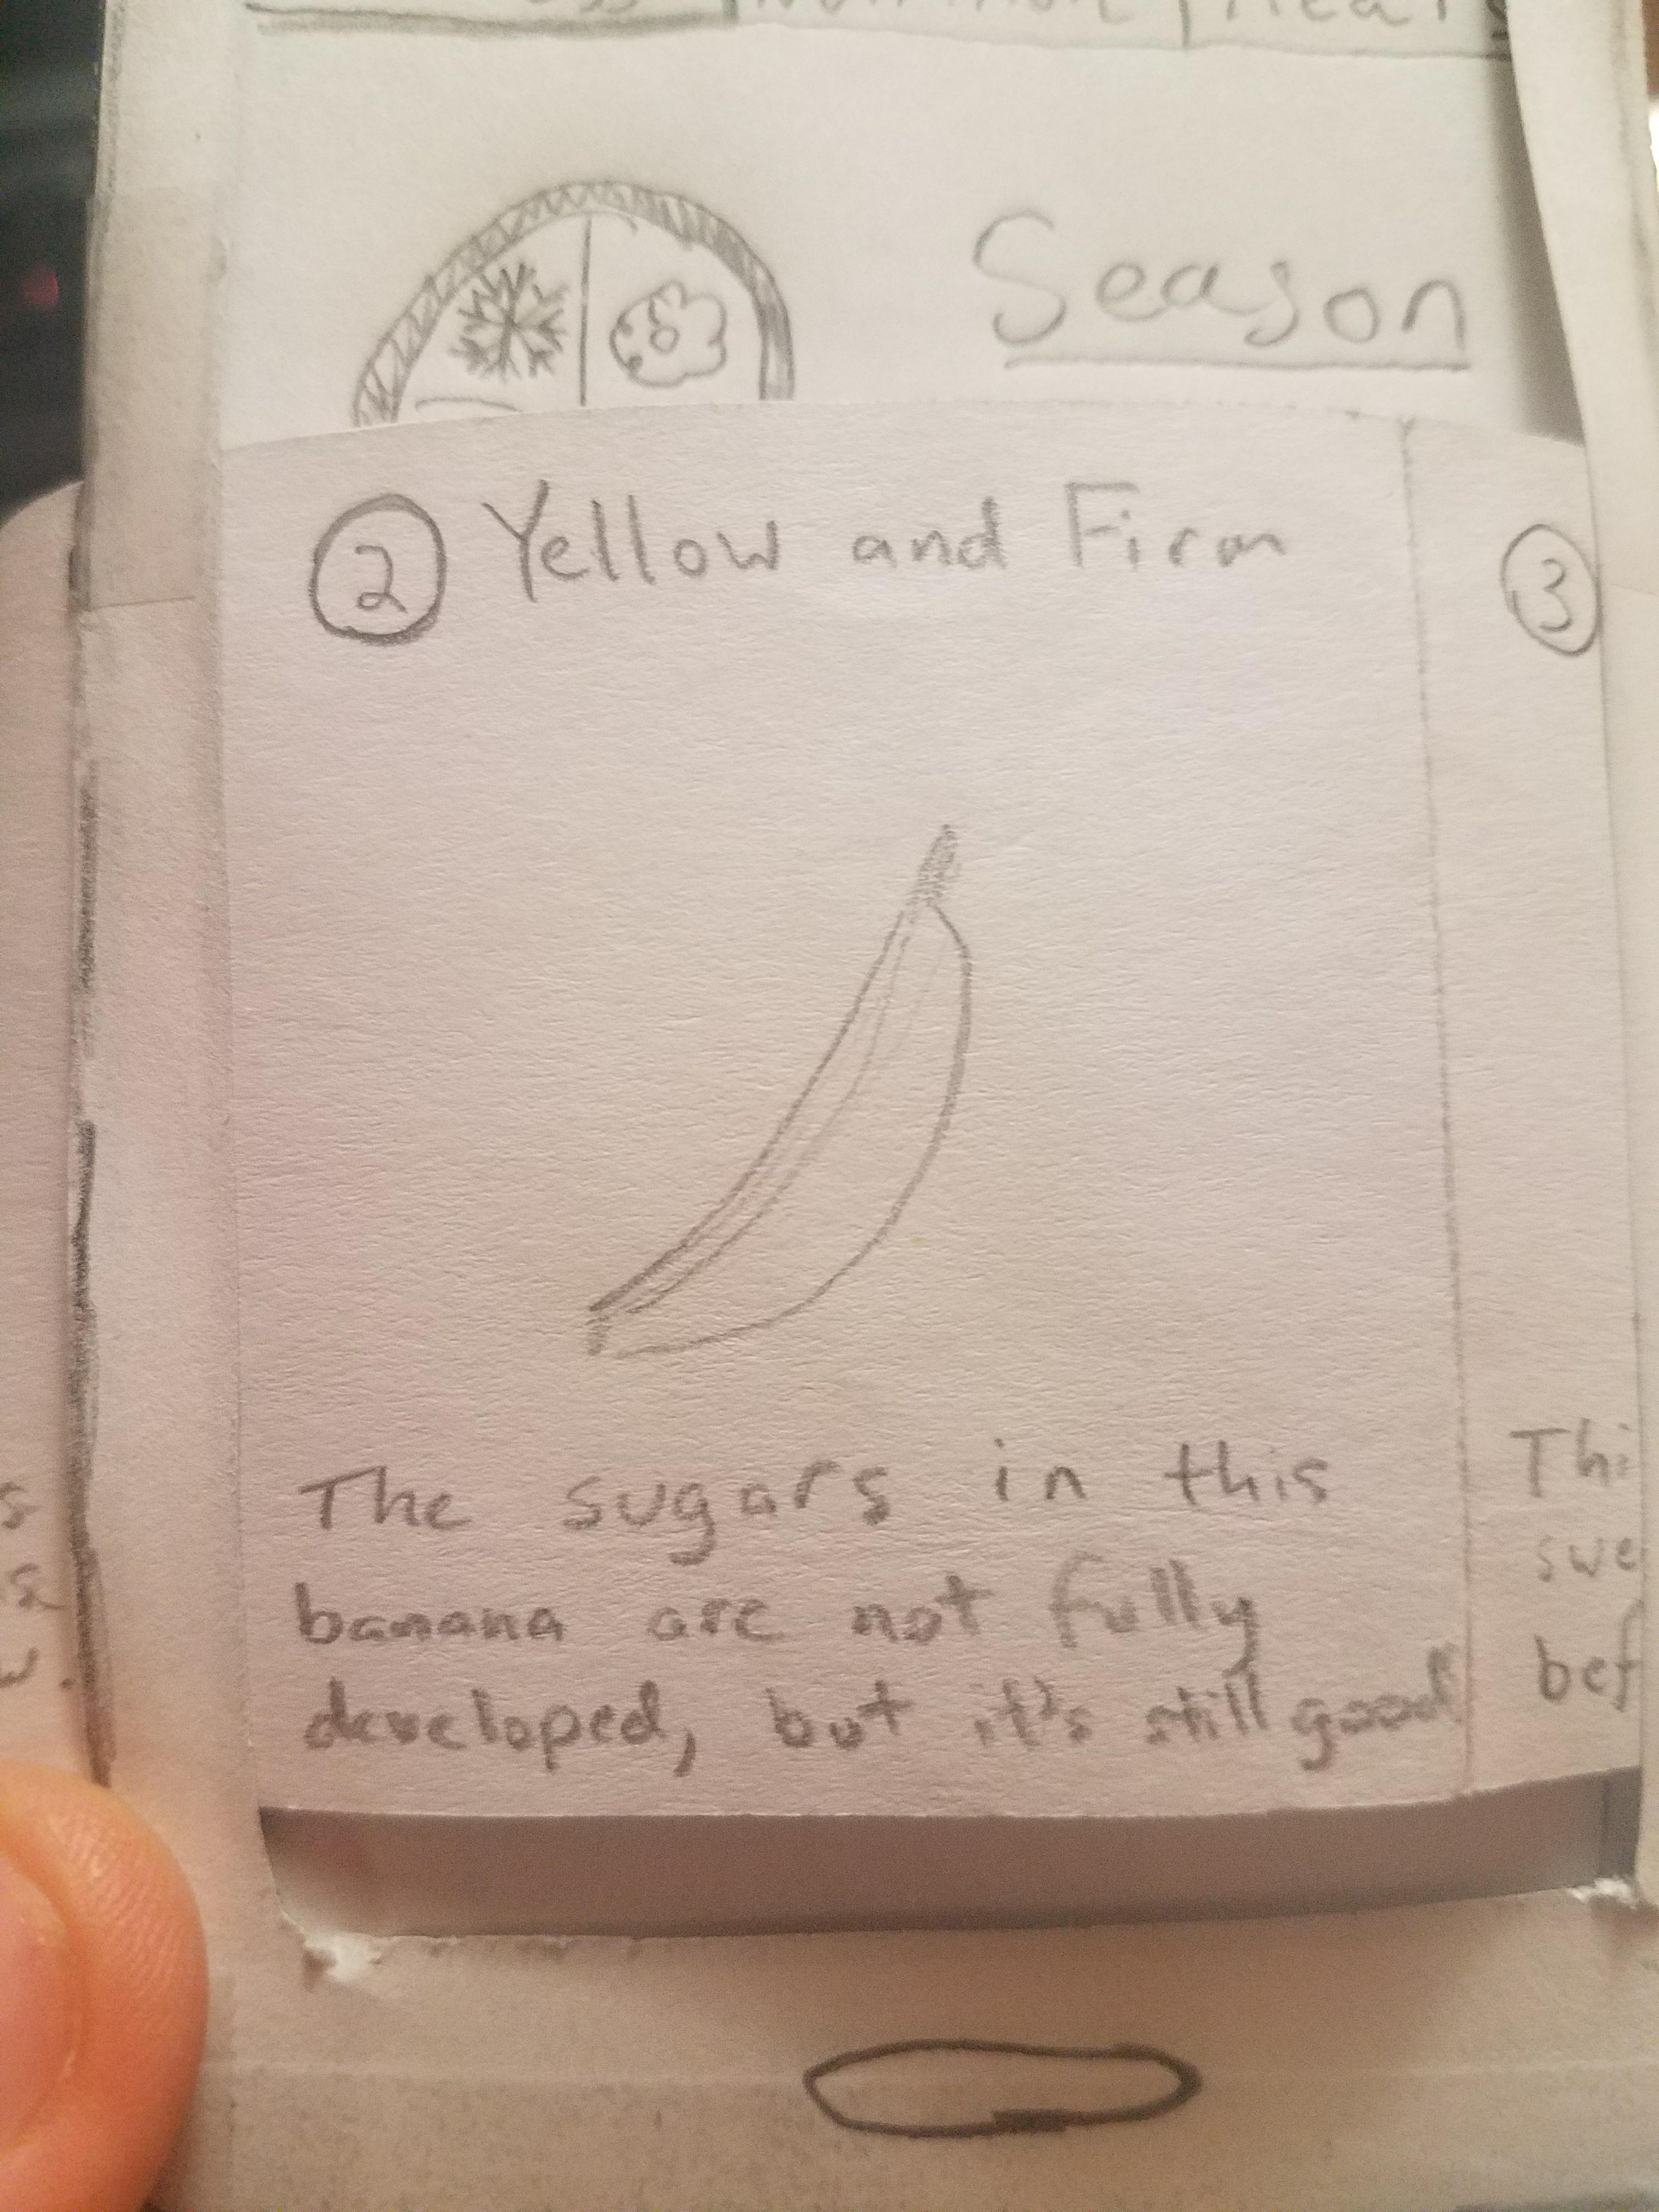 Season
② Yellow and Firm
③
The sugars in this
banana are not fully
developed, but it's still good